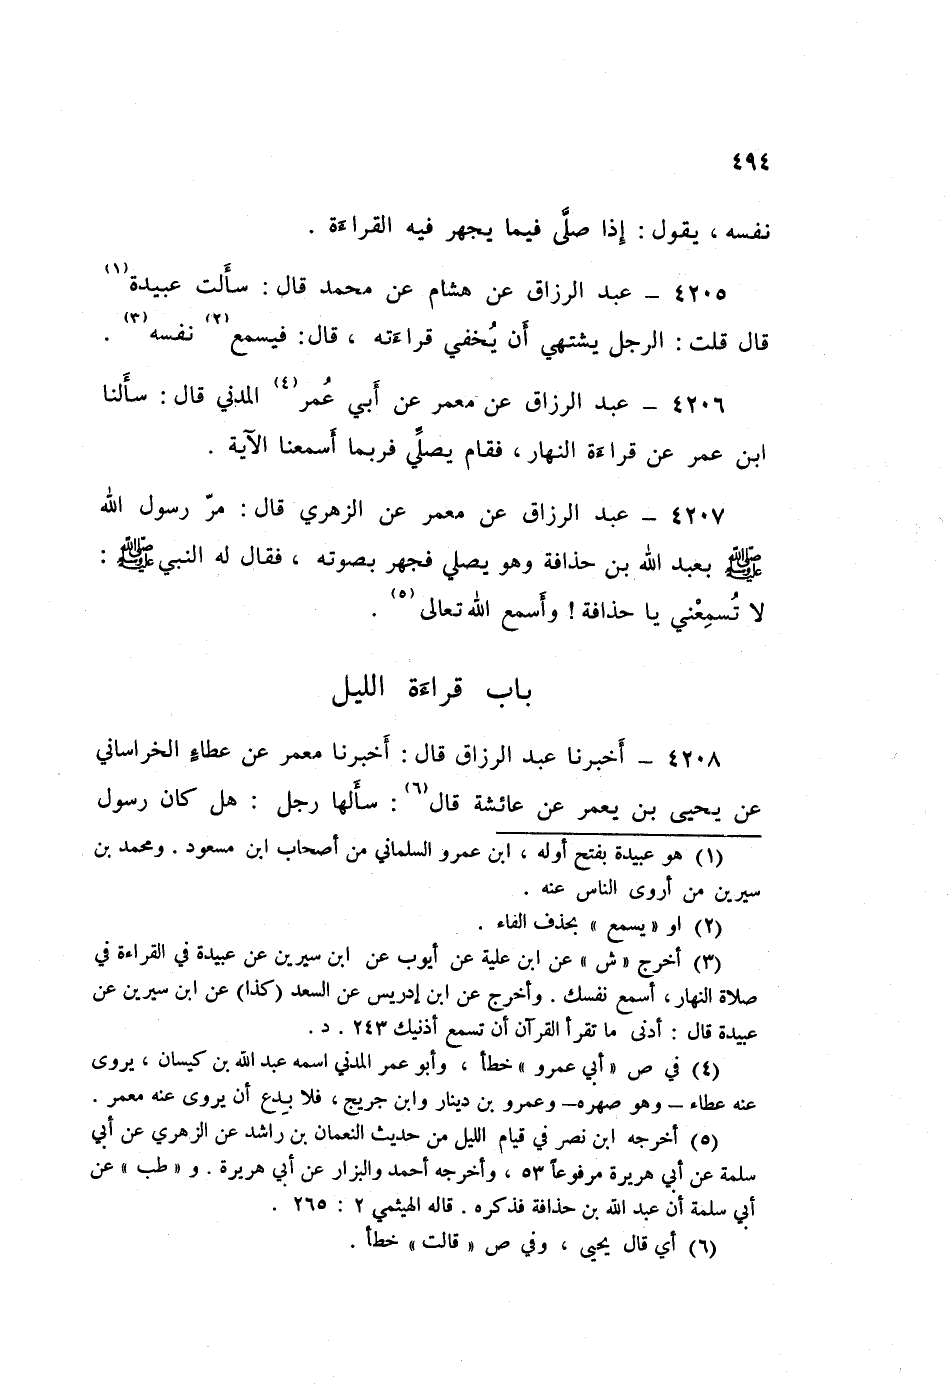 ٤٩٤
نفسه ، يقول : إذا صلَّى فيما يجهر فيه القراءة .
٤٢٠٥ – عبد الرزاق عن هشام عن محمد قال : سأَلت عبيدة(١)
قال قلت : الرجل يشتهي أَن يُخفي قراءته ، قال: فيسمع(٢) نفسه(٣) .
٤٢٠٦ – عبد الرزاق عن معمر عن أَبي عُمر(٤) المدني قال : سأَلنا
ابن عمر عن قراءة النهار ، فقام يصلِّي فربما أَسمعنا الآية .
٤٢٠٧ – عبد الرزاق عن معمر عن الزهري قال : مرّ رسول الله
ﷺ بعبد الله بن حذافة وهو يصلي فجهر بصوته ، فقال له النبي ﷺ :
لا تُسمِعْني يا حذافة ! وأَسمع الله تعالى(٥) .
باب قراءة الليل
٤٢٠٨ – أَخبرنا عبد الرزاق قال : أَخبرنا معمر عن عطاءٍ الخراساني
عن يحيى بن يعمر عن عائشة قال(٦) : سأَلها رجل : هل كان رسول
(١) هو عبيدة بفتح أوله ، ابن عمرو السلماني من أصحاب ابن مسعود . ومحمد بن
سيرين من أروى الناس عنه .
(٢) او « يسمع » بحذف الفاء .
(٣) أخرج « ش » عن ابن علية عن أيوب عن ابن سيرين عن عبيدة في القراءة في
صلاة النهار ، أسمع نفسك . وأخرج عن ابن إدريس عن السعد (كذا) عن ابن سيرين عن
عبيدة قال : أدنى ما تقرأ القرآن أن تسمع أذنيك ٢٤٣ . د .
(٤) في ص « أبي عمرو » خطأ ، وأبو عمر المدني اسمه عبد الله بن كيسان ، يروى
عنه عطاء – وهو صهره – وعمرو بن دينار وابن جريج ، فلا بدع أن يروى عنه معمر .
(٥) أخرجه ابن نصر في قيام الليل من حديث النعمان بن راشد عن الزهري عن أبي
سلمة عن أبي هريرة مرفوعاً ٥٣ ، وأخرجه أحمد والبزار عن أبي هريرة . و « طب » عن
أبي سلمة أن عبد الله بن حذافة فذكره . قاله الهيثمي ٢ : ٢٦٥ .
(٦) أي قال يحيى ، وفي ص « قالت » خطأ .